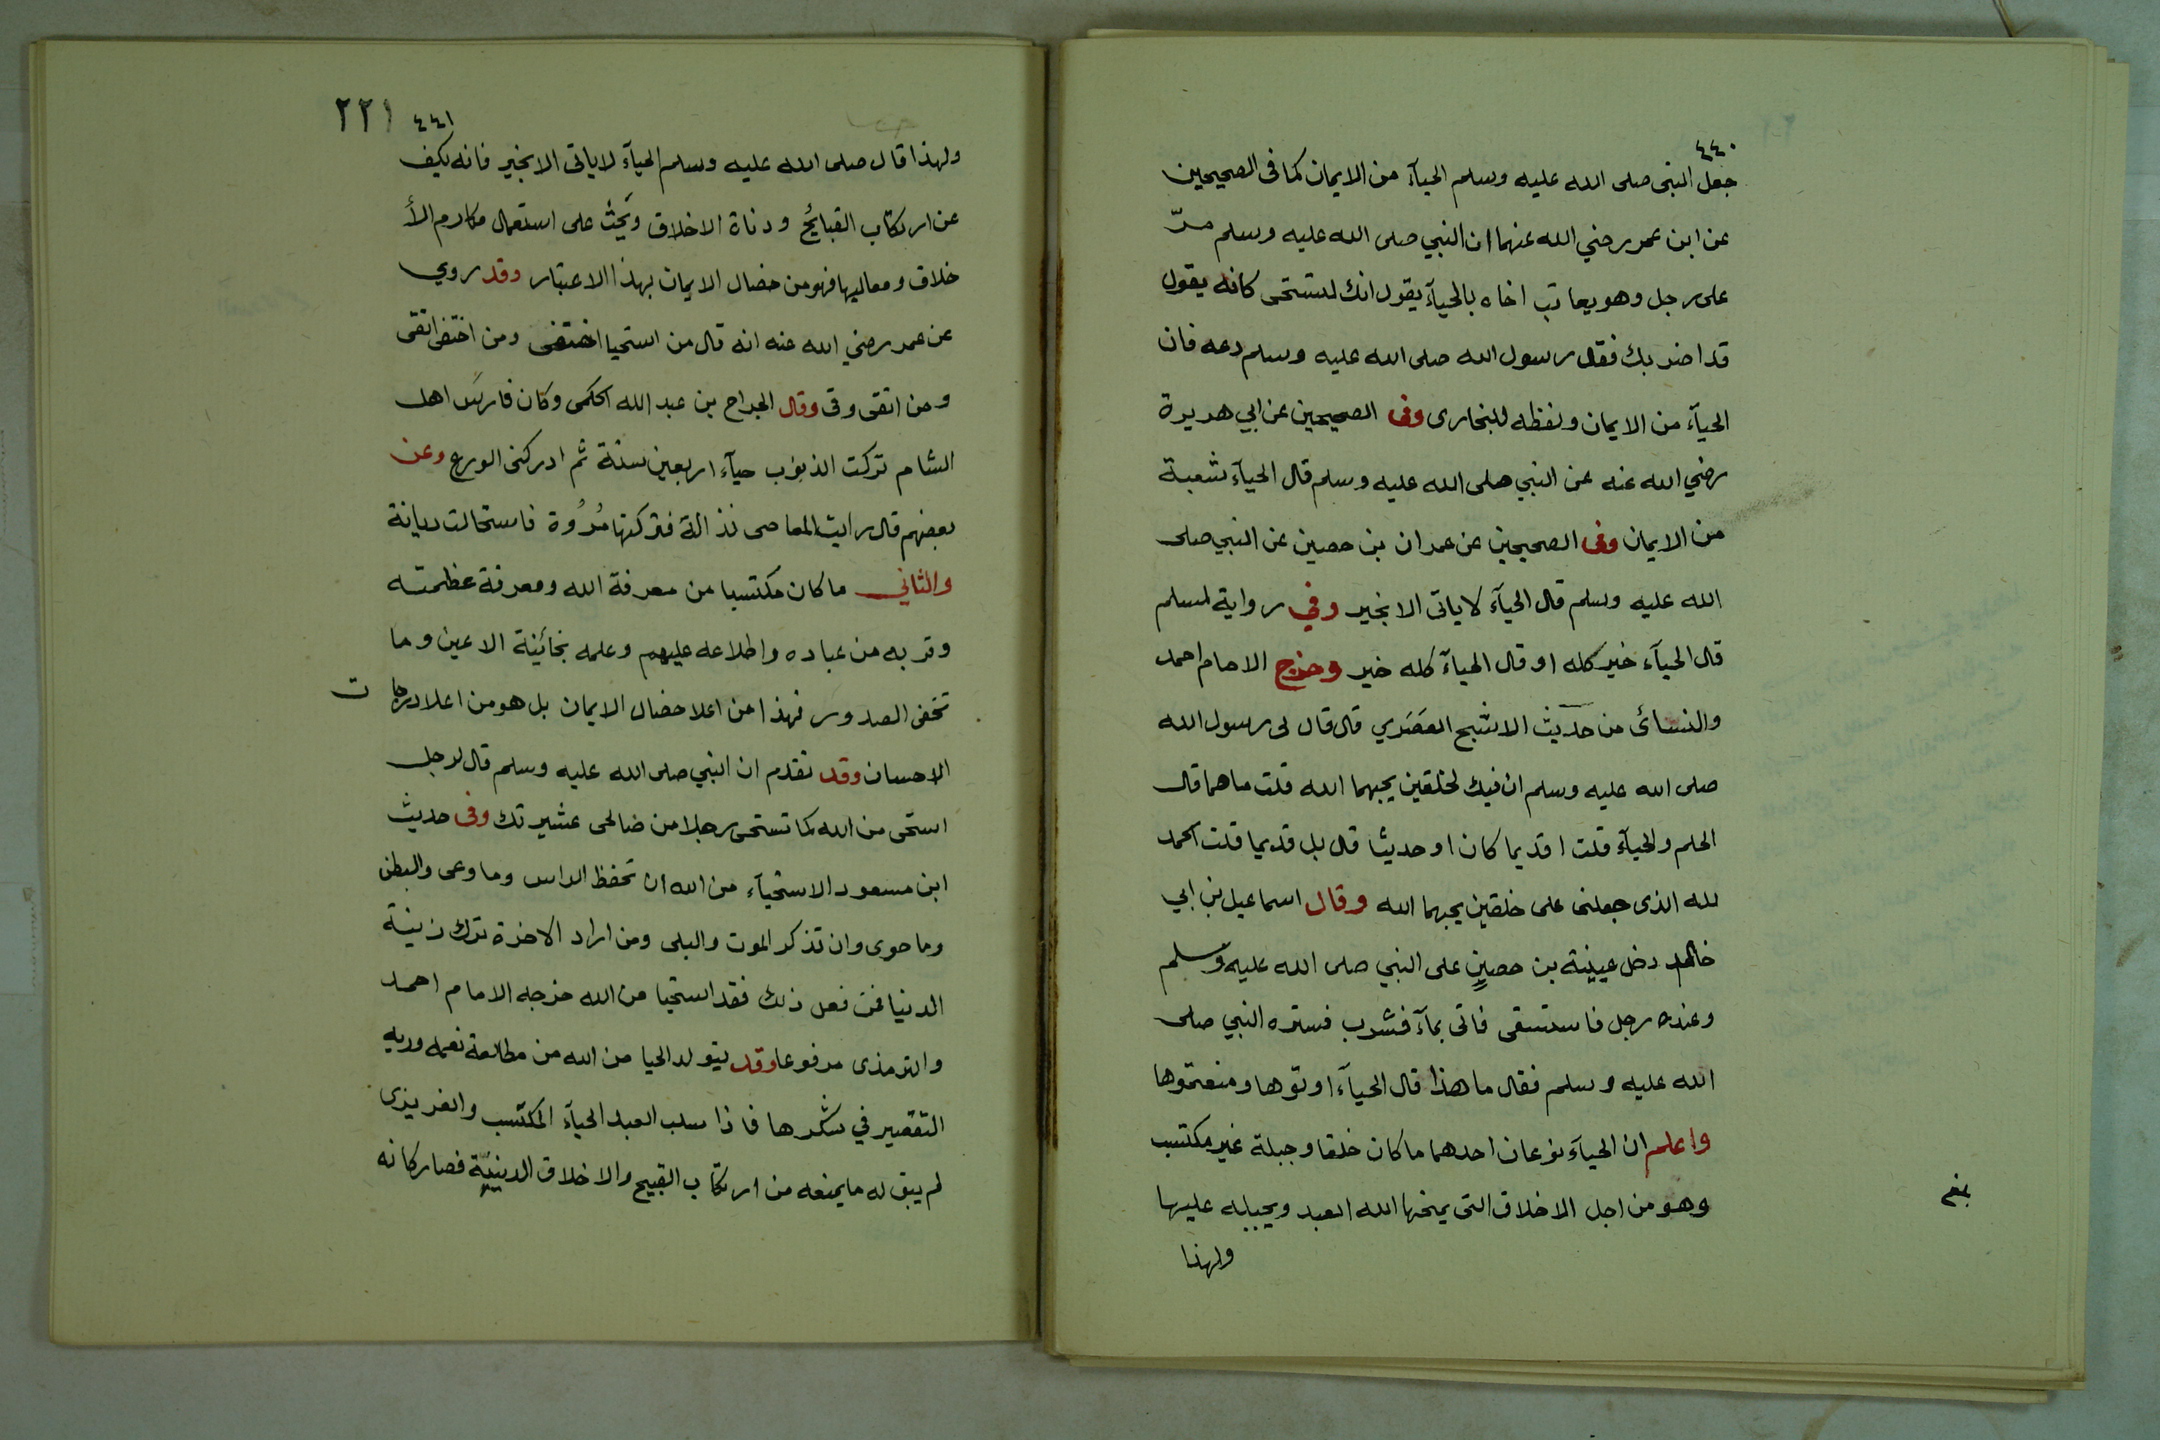 ٤٤٠
جعل النبى صلى الله عليه وسلم الحيآء من الايمان كما فى الصحيحين
عن ابن عمر رضي الله عنهما ان النبي صلى الله عليه وسلم مرّ
على رجل وهو يعاتب اخاه بالحيآء يقول انك لتستحى كانه يقول
قد اضر بك فقال رسول الله صلى الله عليه وسلم دعه فان
الحيآء من الايمان ولفظه للبخارى وفى الصحيحين عن ابي هريرة
رضي الله عنه عن النبي صلى الله عليه وسلم قال الحيآء شعبة
من الايمان وفى الصحيحين عن عمران بن حصين عن النبي صلى
الله عليه وسلم قال الحيآء لاياتى الا بخير وفي رواية لمسلم
قال الحيآء خير كله او قال الحيآء كله خير وخرج الامام احمد
والنسائ من حديث الاشبح العصَري قال قال لى رسول الله
صلى الله عليه وسلم ان فيك لخلقين يحبهما الله قلت ما هما قال
الحلم والحيآء قلت اقديما كان او حديثا قال بل قديما قلت الحمد
لله الذى جعلنى على خلقين يحبهما الله وقال اسماعيل بن ابي
خالد دخل عيينة بن حصين على النبي صلى الله عليه وسلم
وعنده رجل فاستسقى فاتى بمآء فشرب فستره النبي صلى
الله عليه وسلم فقال ما هذا قال الحيآء اوتوها ومنعتموها
واعلم ان الحيآء نوعان احدهما ما كان خلقا وجبلة غير مكتسب
وهو من اجل الاخلاق التى يمنحها الله العبد ويجبله عليها
ولهذا
٤٤١ ٢٢١
ولهذا قال صلى الله عليه وسلم الحيآء لاياتى الا بخير فانه يكيف
عن ارتكاب القبايح ودناة الاخلاق ويَحثُ على استعمال مكارم الأ
خلاق ومعاليها فهو من خصال الايمان بهذا الاعتبار وقد روي
عن عمر رضي الله عنه انه قال من استحيا اختفى ومن اختفى اتقى
ومن اتقى وقى وقال الجراح بن عبد الله الحكمى وكان فارسَ اهل
الشام تركت الذنوب حيآء اربعين سنة ثم ادركنى الورع وعن
بعضهم قال رايت المعاصى نذالة فتركتها مُرُوة فاستحالت ديانة
والثاني ما كان مكتسبا من معرفة الله ومعرفة عظمته
وقربه من عباده واطلاعه عليهم وعلمه بخائينة الاعين وما
تخفى الصدور فهذا من اعلا خصال الايمان بل هو من اعلا درجات
الاحسان وقد تقدم ان النبي صلى الله عليه وسلم قال لرجل
استحى من الله كما تستحى رجلا من صالحى عشيرتك وفى حديث
ابن مسعود الاستحيآء من الله ان تحفظ الراس وما وعى والبطن
وما حوى وان تذكر الموت والبلى ومن اراد الاخرة ترك زنية
الدنيا فمن فعل ذلك فقد استحيا من الله خرجه الامام احمد
والترمذى مرفوعا وقد يتولد الحيا من الله من مطالعة نعمه ورية
التقصير في شكرها فاذا سلب العبد الحيآء المكتسب والغريزى
لم يبق له ما يمنعه من ارتكاب القبيح والاخلاق الدنيّة فصار كانه